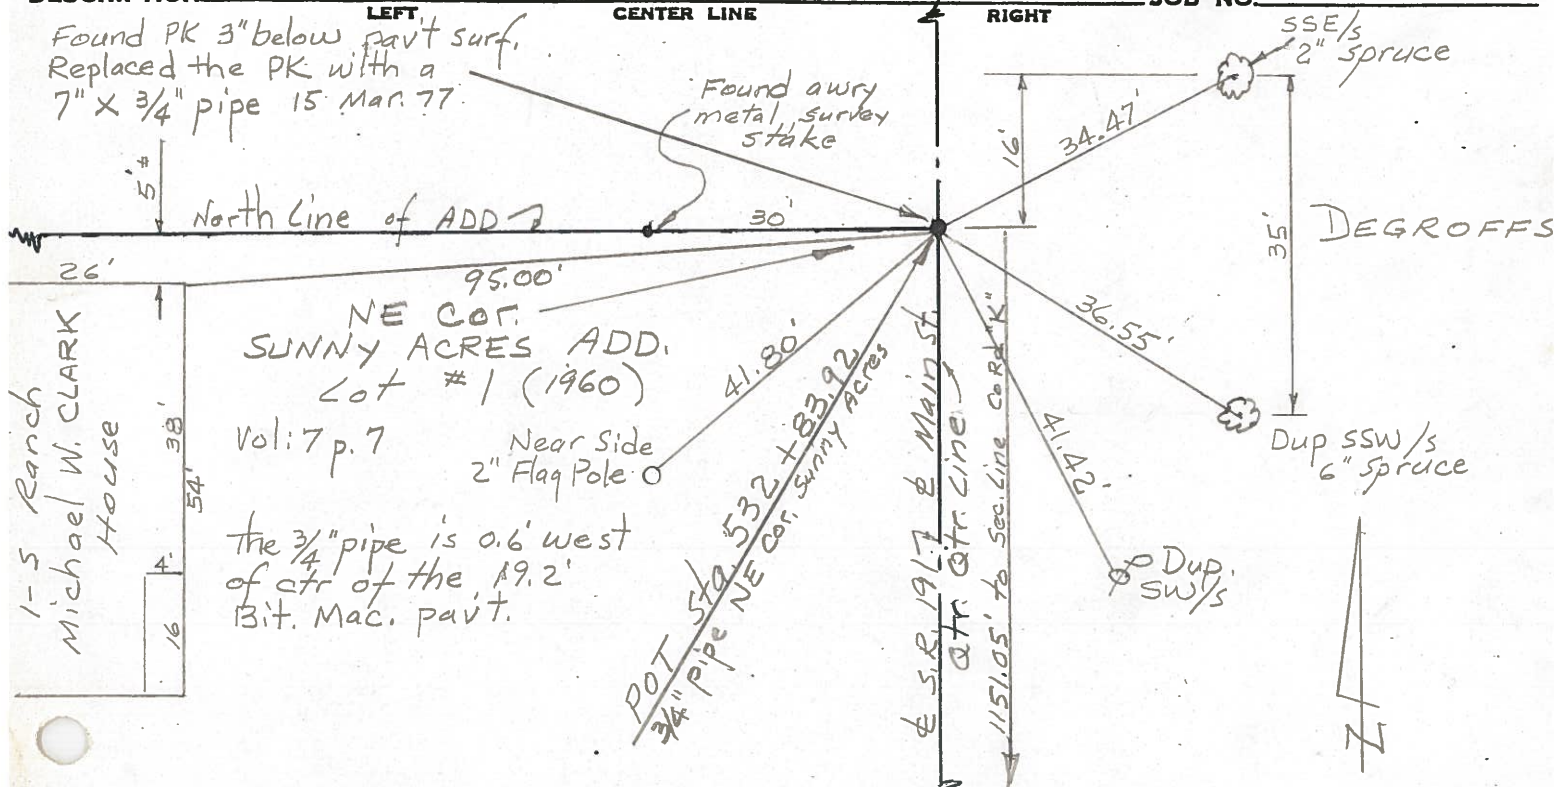 LEFT
CENTER LINE
RIGHT
JOB NO.
Found PK 3" below pav't surf.
Replaced the PK with a
7" x 3/4" pipe 15 Mar. 77
Found awry
metal survey
stake
SSE/s
2" spruce
34.47'
16'
35'
DEGROFFS
5'±
North Line of ADD
30'
26'
95.00'
NE Cor.
SUNNY ACRES ADD.
Lot #1 (1960)
Vol: 7 p. 7
41.80'
Near Side
2" Flag Pole
36.55'
41.42'
Dup SSW/s
6" Spruce
Dup.
SW/s
1-S Ranch
Michael W. CLARK
House
38'
54'
4'
16
The 3/4" pipe is 0.6' west
of ctr of the 19.2'
Bit. Mac. pav't.
POT Sta 532+83.92
3/4" pipe NE Cor. Sunny Acres
℄ S.R. 19 L7 ℄ Main St.
Qtr. Qtr. Line
1151.05' to Sec. Line Co Rd "K"
N